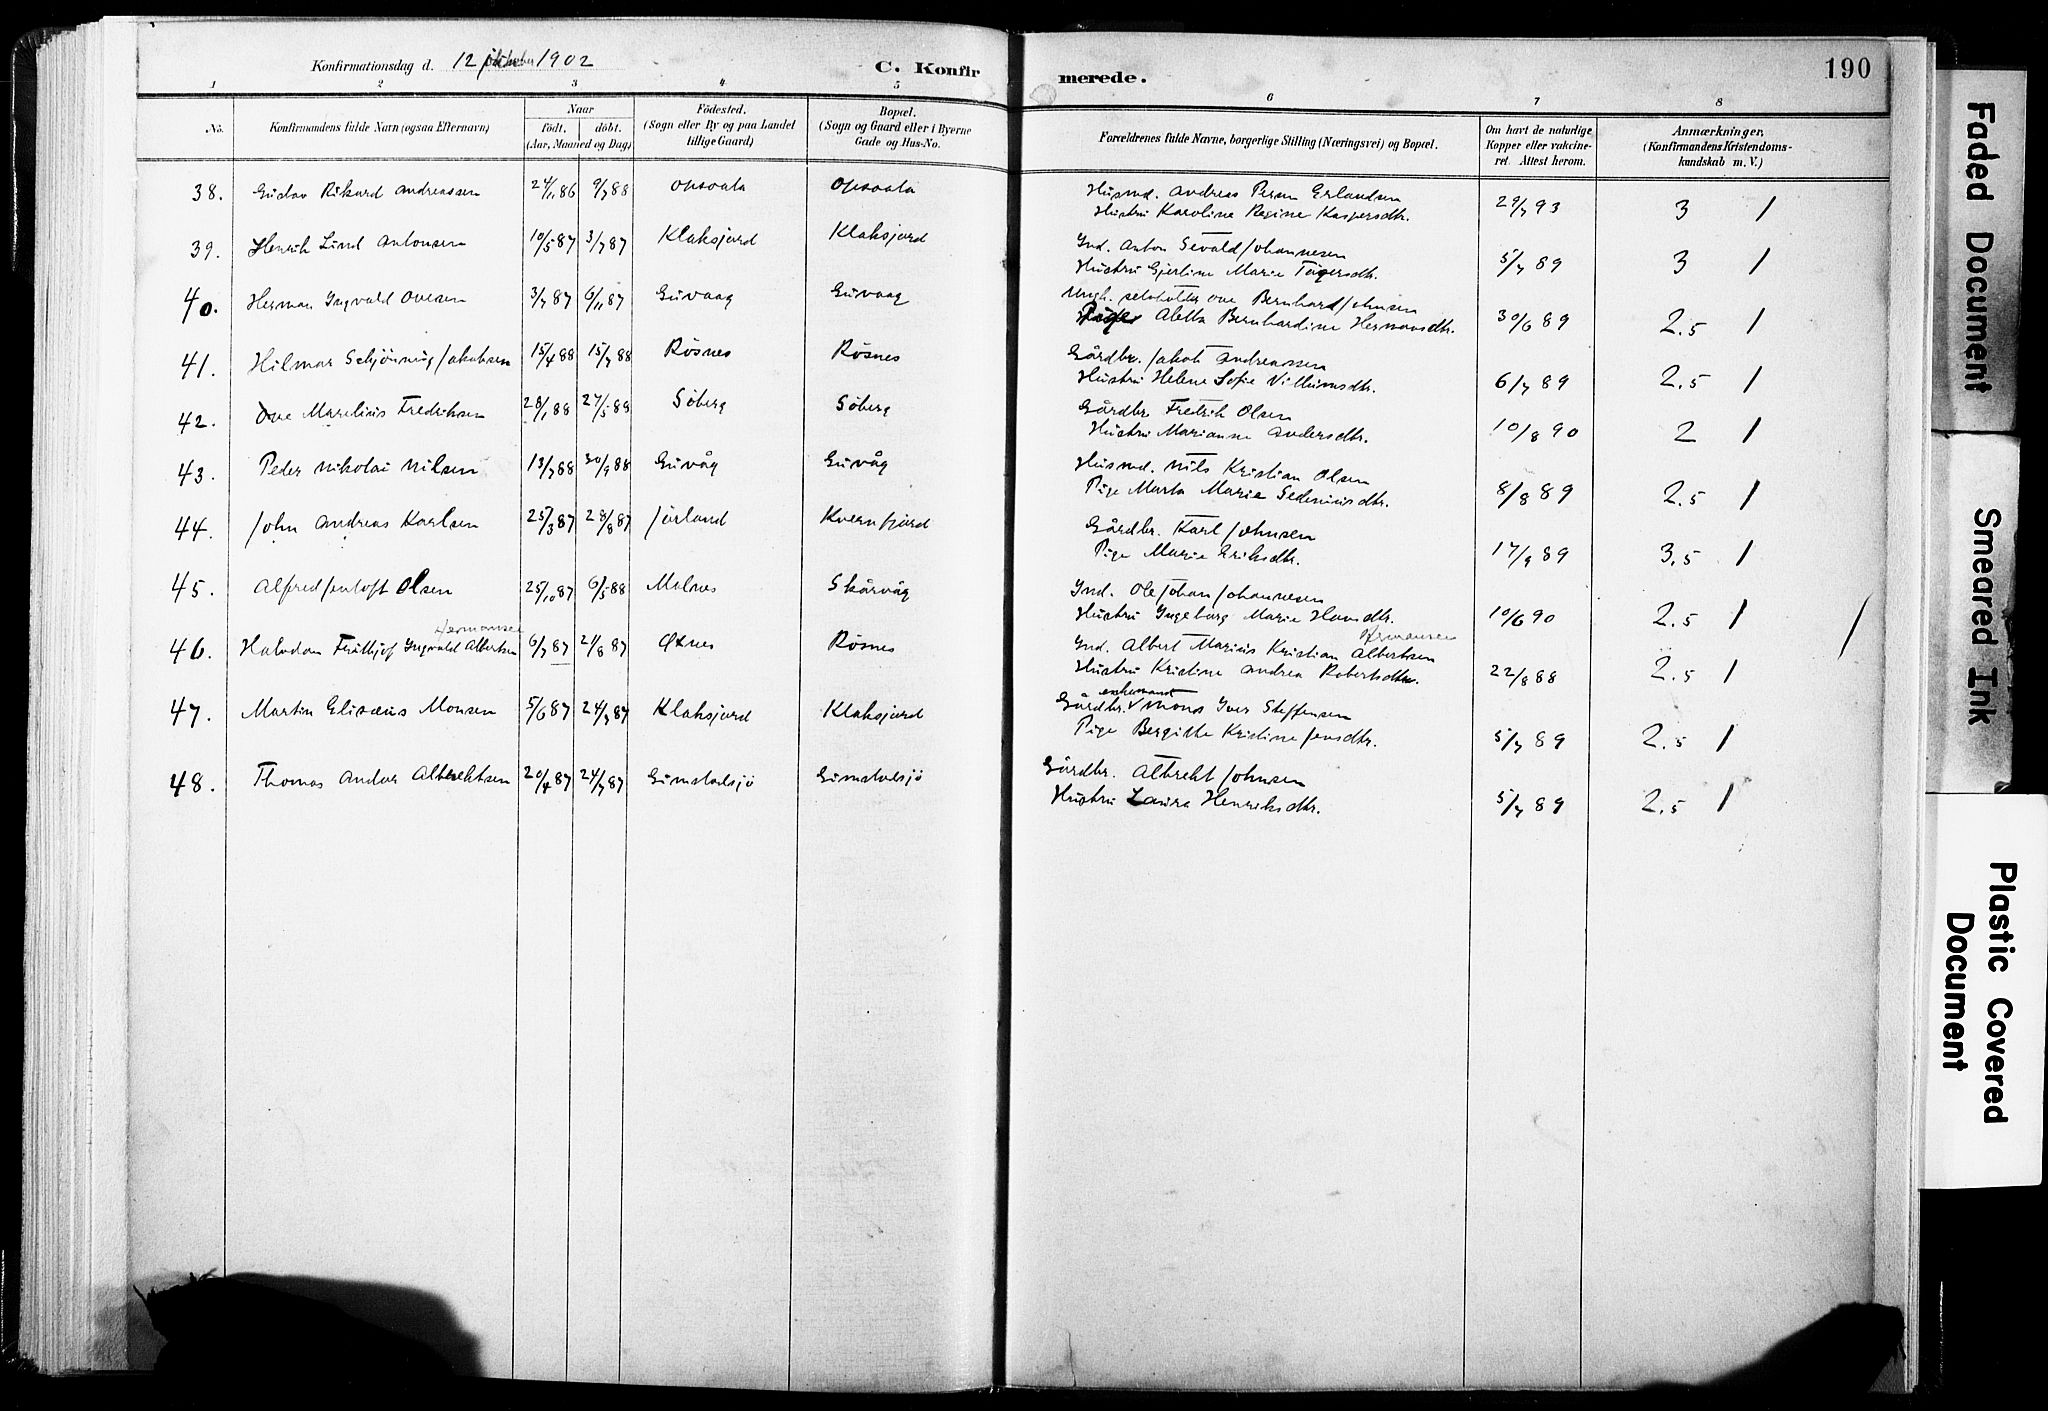 Konfirmationsdag d. 12 oktober 1902
C. Konfirmerede.
190
1 2 3 4 5 6 7 8
No.
Konfirmandens fulde Navn (ogsaa Efternavn)
Naar
födt. döbt.
(Aar, Maaned og Dag)
Födested.
(Sogn eller By og paa Landet
tillige Gaard)
Bopæl.
(Sogn og Gaard eller i Byerne
Gade og Hus-No.
Forældrenes fulde Navne, borgerlige Stilling (Næringsvei) og Bopæl.
Om havt de naturlige
Kopper eller vakcine-
ret. Attest herom.
Anmærkninger.
(Konfirmandens Kristendoms-
kundskab m. V.)
38. Gustav Rikard Andreassen 24/11 86 9/7 88 Opsaata Opsaata Husmd. Andreas Erlandsen 29/7 93 3 1
Hustru Karoline Regine Kaspersdtr.
39. Henrik Lind Antonsen 10/5 87 3/7 87 Klaksjord Klaksjord Ind. Anton Sevald Johannesen 5/7 89 3 1
Hustru Gjertine Marie Tögersdtr.
40. Herman Ingvald Ovesen 3/7 87 6/11 87 Guvaag Guvaag Ungk. Ove Bernhard Johnsen 30/6 89 2.5 1
Pige Aletta Bernhardine Hermansdtr.
41. Hilmar Schjönning Jakobsen 15/4 88 15/7 88 Rösnes Rösnes Gårdbr. Jakob Andreassen 6/7 89 2.5 1
Hustru Helene Sofie Villumsdtr.
42. Ove Marelius Fredriksen 28/1 88 27/5 88 Söberg Söberg Gårdbr. Fredrik Olsen 10/8 90 2 1
Hustru Marianne Andersdtr.
43. Peder Nikolai Nilsen 13/7 88 30/9 88 Guvåg Guvåg Husmd. Nils Kristian Olsen 8/8 89 2.5 1
Pige Marta Marie Sedeniusdtr.
44. John Andreas Karlsen 25/3 87 28/8 87 Jörland Kvernfjord Gårdbr. Karl Johnsen 17/9 89 3.5 1
Pige Marie Eriksdtr.
45. Alfred Jentoft Olsen 25/10 87 6/5 88 Melnes Skårvåg Ind. Ole Johan Johannesen 10/6 90 2.5 1
Hustru Ingeborg Marie Hansdtr.
Hermansen
46. Halvdan Fritthjof Ingvald Albertsen 6/7 87 21/8 87 Öxnes Rösnes Ind. Albert Marius Kristian Albertsen Hermansen 22/8 88 2.5 1
Hustru Kristine Andrea Robertsdtr.
47. Martin Elisæus Monsen 5/6 87 24/7 87 Klaksjord Klaksjord Gårdbr. enkemand Mons Iver Steffensen 5/7 89 2.5 1
Pige Bergitte Kristine Jensdtr.
48. Thomas Andor Albrektsen 20/4 87 24/7 87 Gimstadsjö Gimstadsjö Gårdbr. Albrekt Johnsen 5/7 89 2.5 1
Hustru Laura Henriksdtr.
Faded Document
Smeared Ink
Plastic Covered
Document